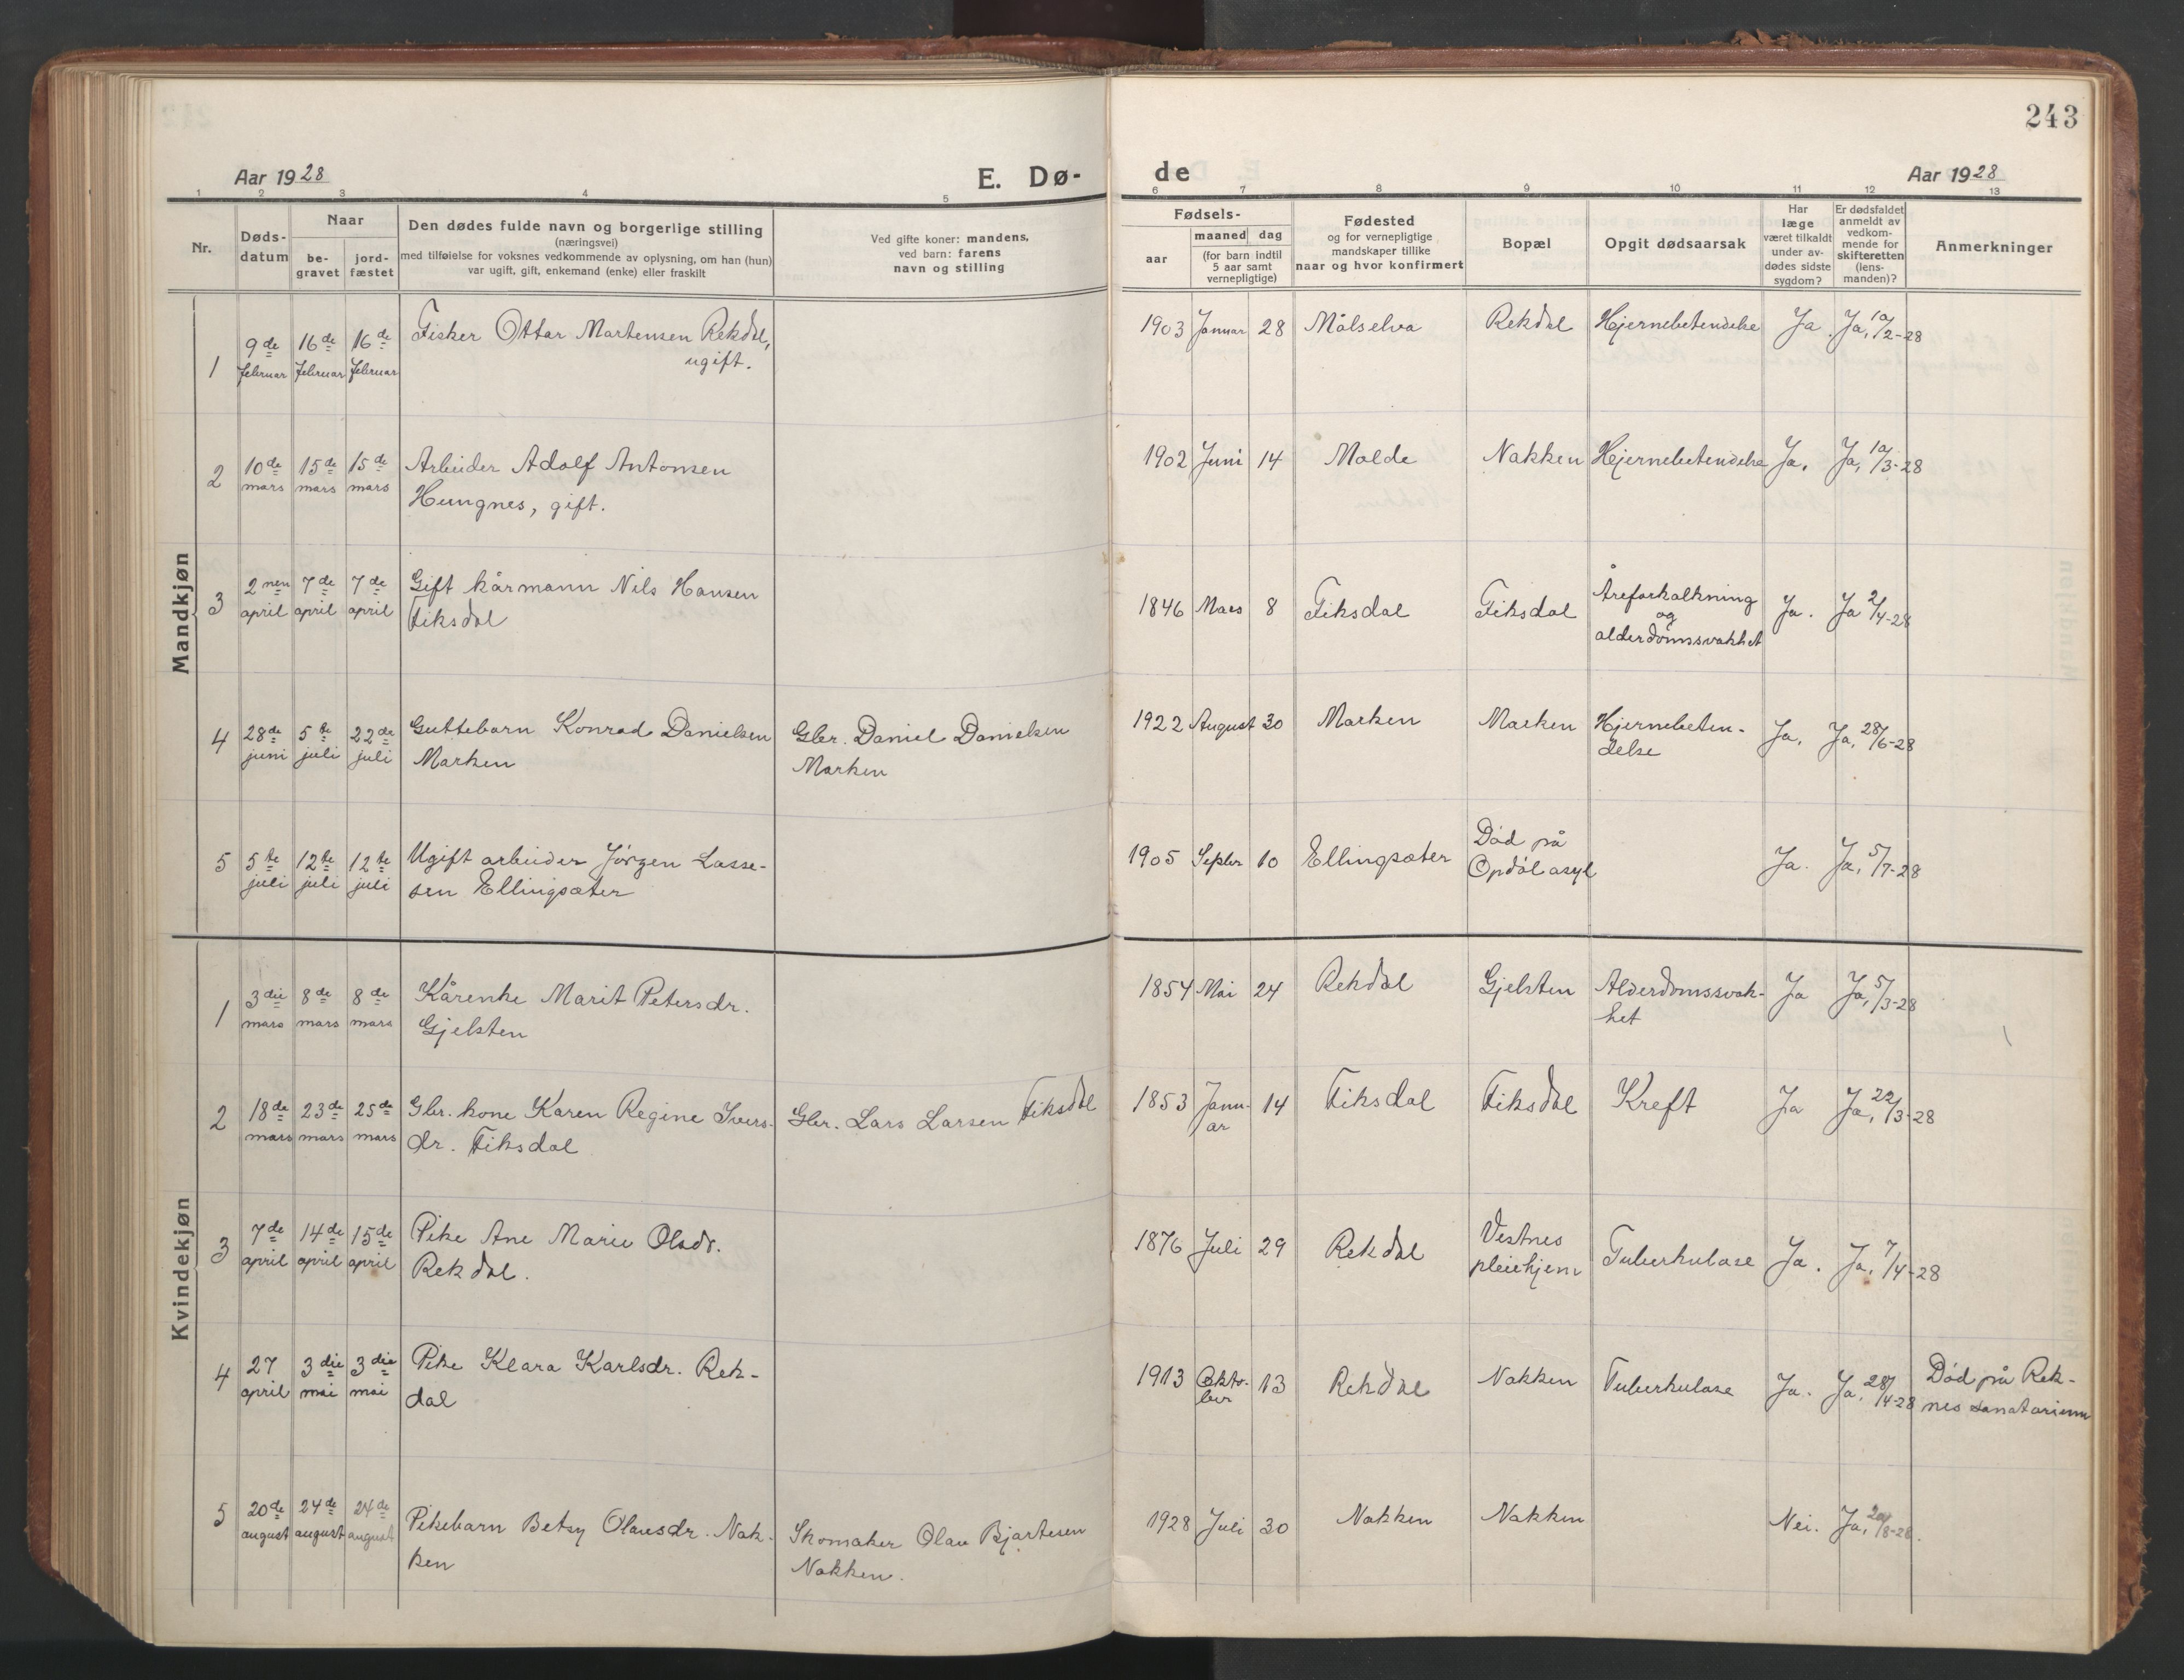 243
Aar 1928
E. Dø-
de
Aar 1928
1 2 3 4 5 6 7 8 9 10 11 12 13
Nr.
Døds-
datum
Naar
be-
gravet
jord-
fæstet
Den dødes fulde navn og borgerlige stilling
(næringsvei)
med tilføielse for voksnes vedkommende av oplysning, om han (hun)
var ugift, gift, enkemand (enke) eller fraskilt
Ved gifte koner: mandens,
ved barn: farens
navn og stilling
Fødsels-
aar
maaned dag
(for barn indtil
5 aar samt
vernepligtige)
Fødested
og for vernepligtige
mandskaper tillike
naar og hvor konfirmert
Bopæl
Opgit dødsaarsak
Har
læge
været tilkaldt
under av-
dødes sidste
sygdom?
Er dødsfaldet
anmeldt av
vedkom-
mende for
skifteretten
(lens-
manden)?
Anmerkninger
Mandkjøn
1 9de februar 16de februar 16de februar
Fisker Ottar Martensen Rekdal,
ugift.
1903 Januar 28 Målselva Rekdal Hjernebetendelse Ja. Ja, 10/2-28
2 10de mars 15de mars 15de mars
Arbeider Adolf Antonsen
Hungnes, gift.
1902 Juni 14 Molde Nakken Hjernebetendelse Ja. Ja, 10/3-28
3 2nen april 7de april 7de april
Gift kårmann Nils Hansen
Fiksdal
1846 Mars 8 Fiksdal Fiksdal Åreforkalkning
og
alderdomssvakhet
Ja. Ja 2/4-28
4 28de juni 5te juli 22de juli
Guttebarn Konrad Danielsen
Marken
Gbr. Daniel Danielsen
Marken
1922 August 30 Marken Marken Hjernebeten-
delse
Ja. Ja, 28/6-28
5 5te juli 12te juli 12te juli
Ugift arbeider Jørgen Lasse-
sen Ellingsæter
1905 Septbr 10 Ellingsæter Død på
Opdøl asyl
Ja. Ja, 5/7-28
Kvindekjøn
1 3die mars 8de mars 8de mars
Kårenke Marit Petersdr.
Gjelsten
1854 Mai 24 Rekdal Gjelsten Alderdomssvak-
het
Ja Ja, 5/3-28
2 18de mars 23de mars 25de mars
Gbr. kone Karen Regine Ivers-
dr. Fiksdal
Gbr. Lars Larsen Fiksdal
1853 Janu-
ar 14 Fiksdal Fiksdal Kreft Ja Ja, 22/3-28
3 7de april 14de april 15de april
Pike Ane Marie Olsdr.
Rekdal.
1876 Juli 29 Rekdal Vestnes
pleiehjem
Tuberkulose Ja. Ja, 7/4-28
4 27 april 3die mai 3die mai
Pike Klara Karlsdr. Rek-
dal
1913 Okto-
ber 13 Rekdal Nakken Tuberkulose Ja. Ja, 28/4-28 Død på Rek-
nes sanatorium
5 20de august 24de august 24de august
Pikebarn Betsy Olausdr. Nak-
ken
Skomaker Olau Bjartesen
Nakken.
1928 Juli 30 Nakken Nakken Nei. Ja, 20/8-28.